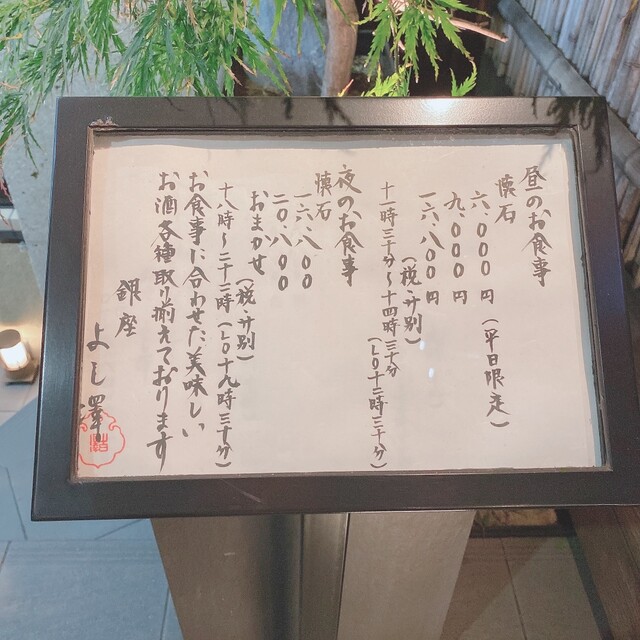 昼のお食事
懐石
六、〇〇〇円(平日限定)
九、〇〇〇円
一六、八〇〇円
(税・サ別)
十一時三十分〜十四時三十分
(LO十二時三十分)
夜のお食事
懐石
一六、八〇〇
二〇、八〇〇
おまかせ
(税・サ別)
十八時〜二十二時(LO十九時三十分)
お食事に合わせた美味しい
お酒各種取り揃えております
銀座
よし澤